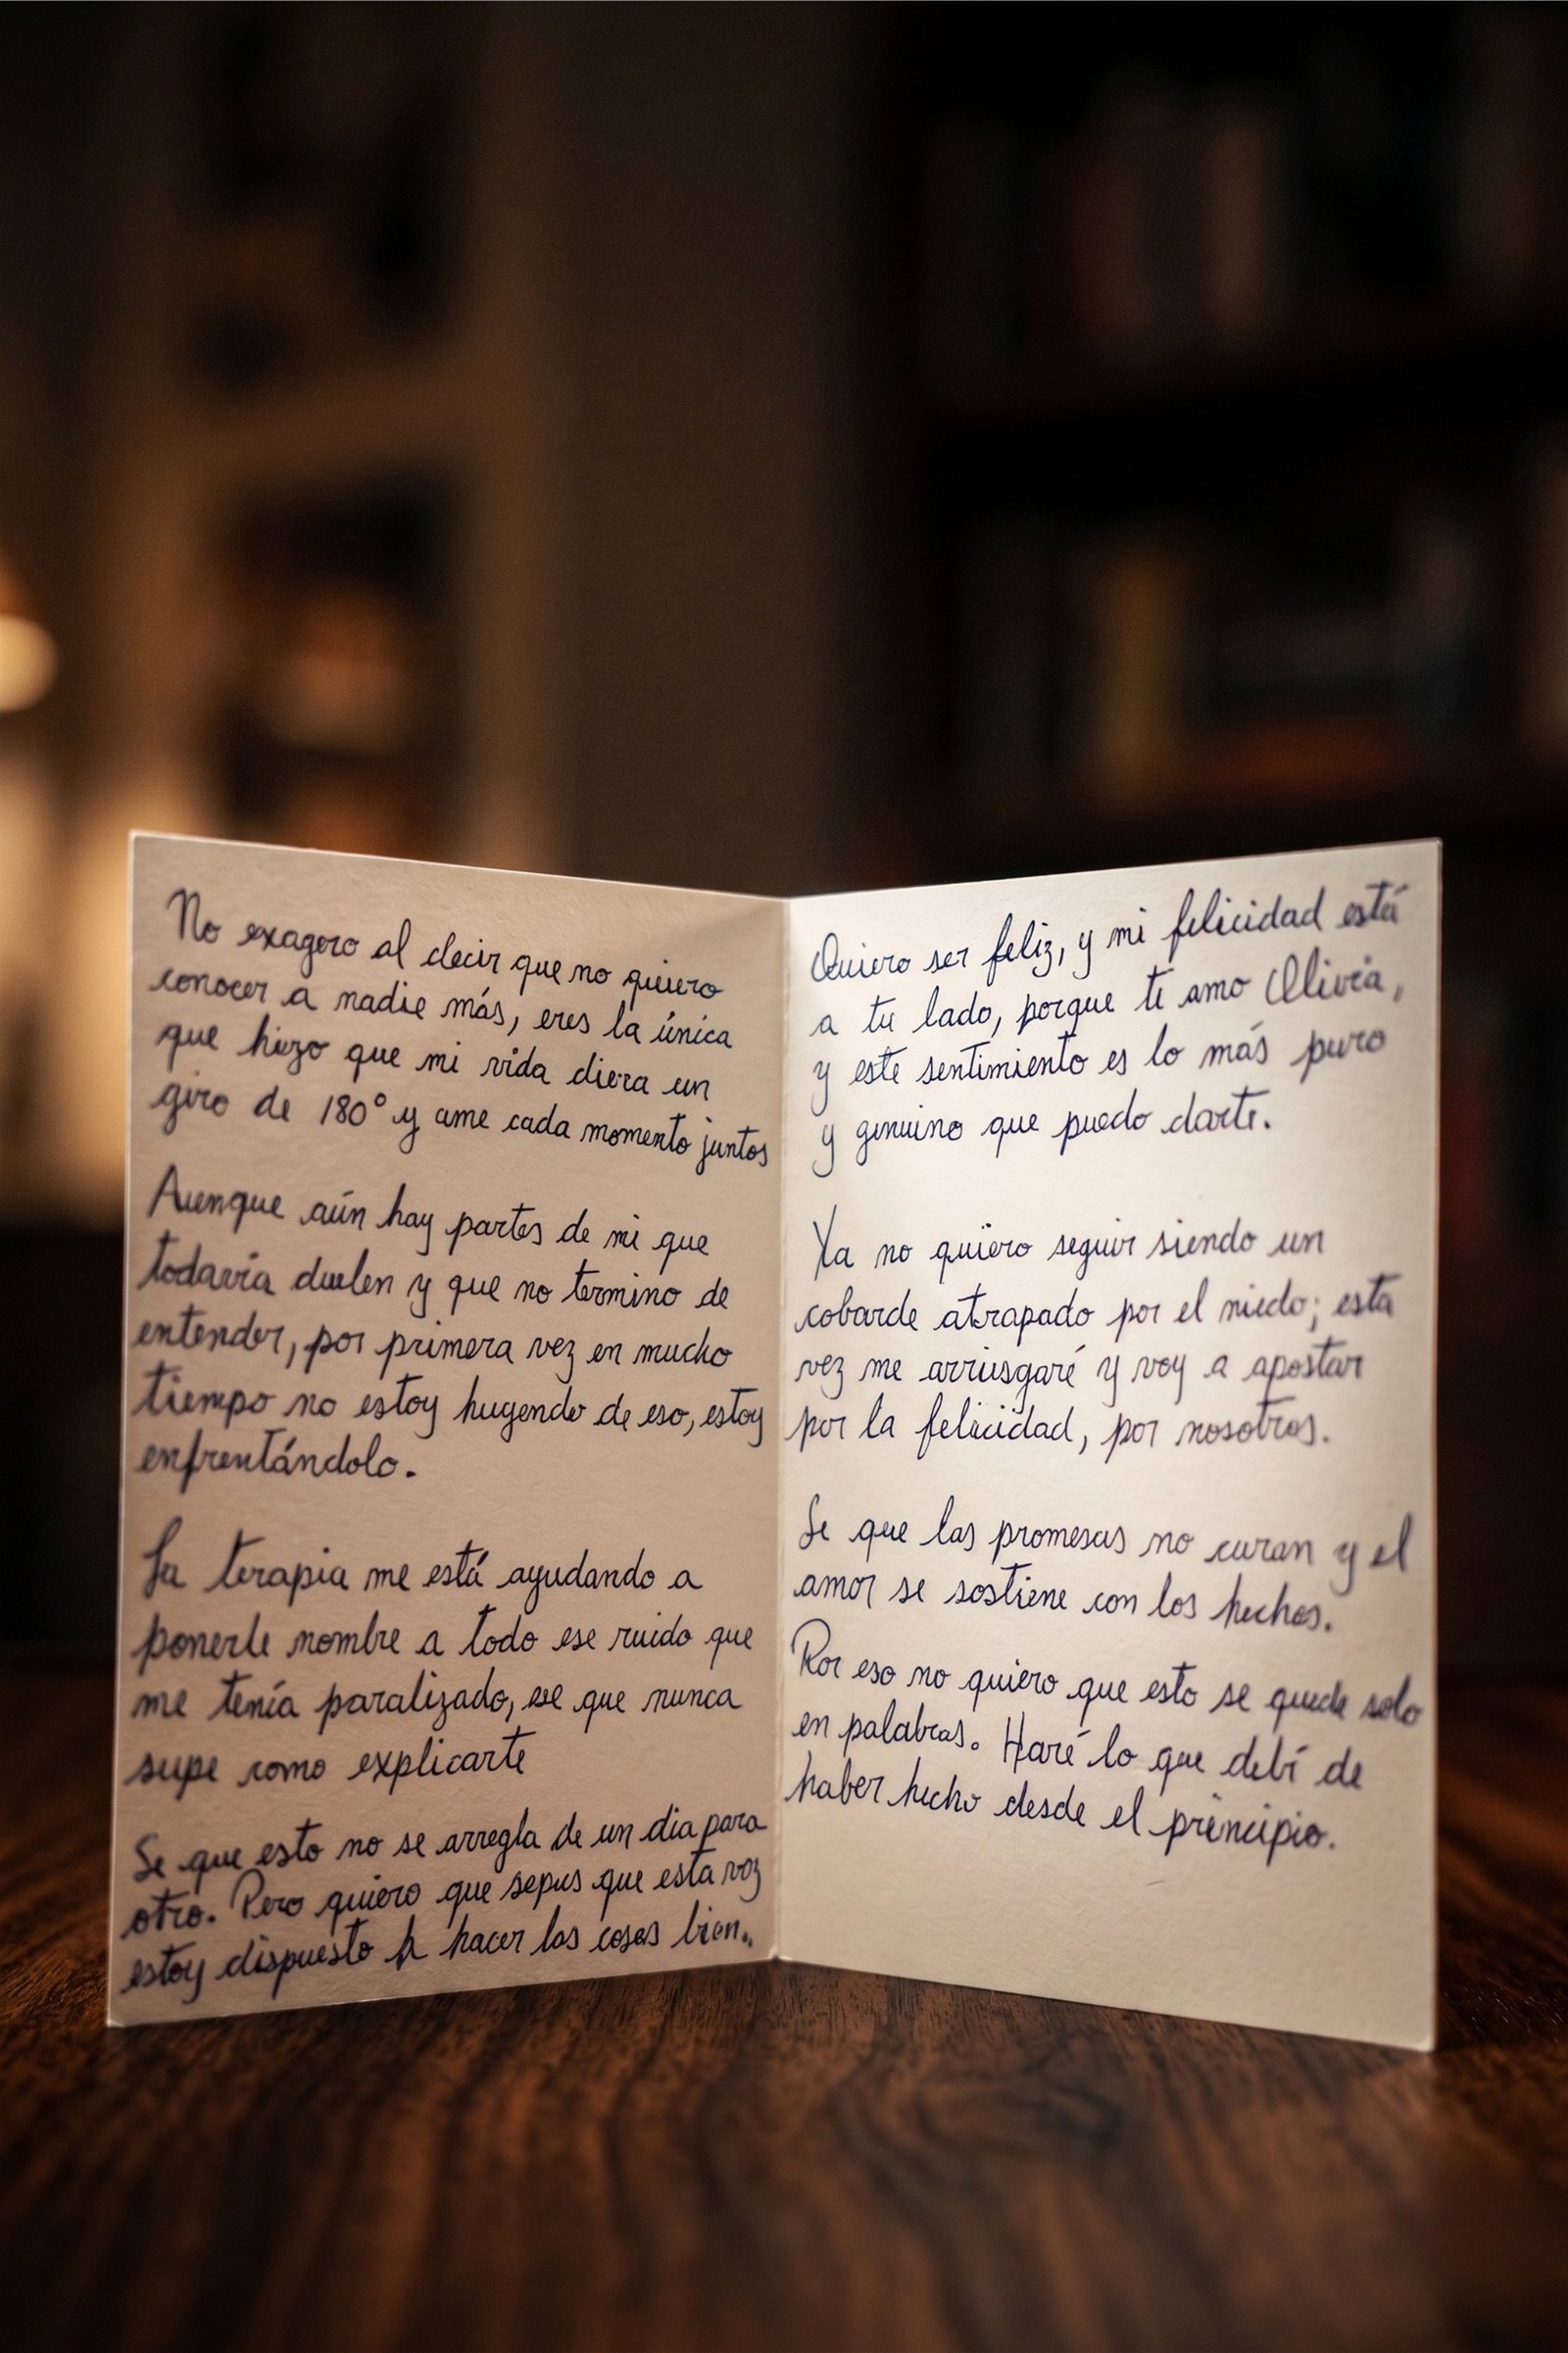 No exagero al decir que no quiero
conocer a nadie más, eres la única
que hizo que mi vida diera un
giro de 180° y ame cada momento juntos
Aunque aún hay partes de mi que
todavía duelen y que no termino de
entender, por primera vez en mucho
tiempo no estoy huyendo de eso, estoy
enfrentándolo.
La terapia me está ayudando a
ponerle nombre a todo ese ruido que
me tenía paralizado, ese que nunca
supe como explicarte
Se que esto no se arregla de un dia para
otro. Pero quiero que sepas que esta vez
estoy dispuesto a hacer las cosas bien.
Quiero ser feliz, y mi felicidad está
a tu lado, porque te amo Olivia,
y este sentimiento es lo más puro
y genuino que puedo darte.
Ya no quiero seguir siendo un
cobarde atrapado por el miedo; esta
vez me arriesgaré y voy a apostar
por la felicidad, por nosotros.
Se que las promesas no curan y el
amor se sostiene con los hechos.
Por eso no quiero que esto se quede solo
en palabras. Haré lo que debí de
haber hecho desde el principio.